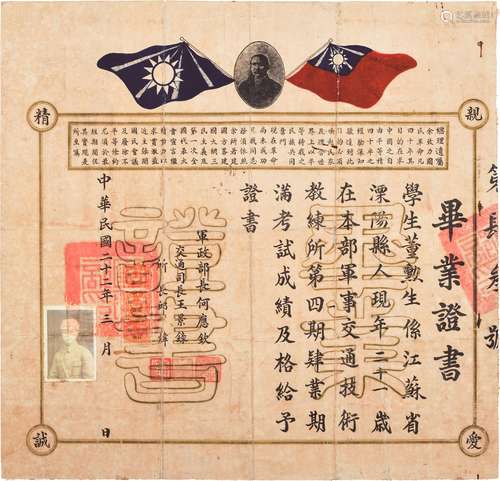 畢業證書
總理遺囑
余致力國
民革命凡
四十年其
目的在求
中國之自
由平等積
四十年之
經驗深知
欲達到此
目的必須
喚起民衆
及聯合世
界上以平
等待我之
民族共同
奮鬥
現在革命
尚未成功
凡我同志
務須依照
余所著建
國方略建
國大綱三
民主義及
第一次全
國代表大
會宣言繼
續努力以
求貫徹最
近主張開
國民會議
及廢除不
平等條約
尤須於最
短期間促
其實現是
所至囑
學生董勳生係江蘇省
溧陽縣人現年二十歲
在本部軍事交通技術
教練所第四期肄業期
滿考試成績及格給予
證書
軍政部長何應欽
交通司長王景錄
所長
中華民國二十二年三月 日
親
愛
精
誠